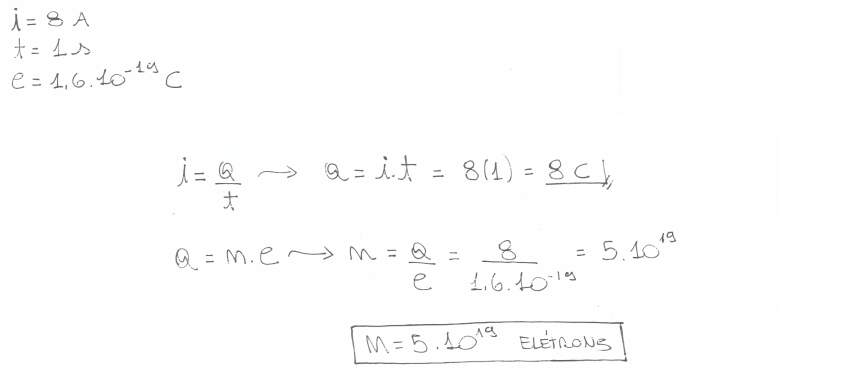 i = 8 A
t = 1 s
e = 1,6.10⁻¹⁹ C
i = Q/t → Q = i.t = 8(1) = 8 C //
Q = n.e → n = Q/e = 8/1,6.10⁻¹⁹ = 5.10¹⁹
n = 5.10¹⁹ ELÉTRONS